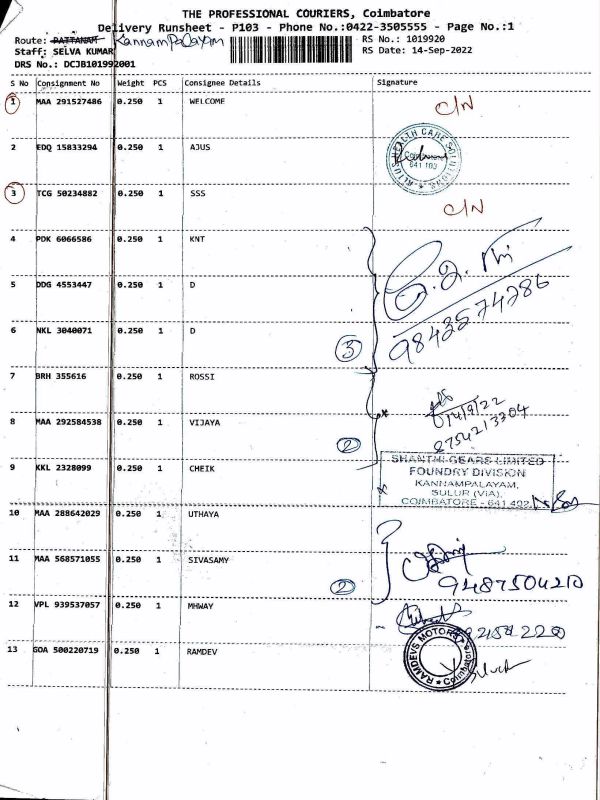 THE PROFESSIONAL COURIERS, Coimbatore
Delivery Runsheet - P103 - Phone No.:0422-3505555 - Page No.:1
Route: PATTANAM Kannampalayam
RS No.: 1019920
Staff: SELVA KUMAR
RS Date: 14-Sep-2022
DRS No.: DCJB101992001
S No Consignment No Weight PCS Consignee Details Signature
1 MAA 291527486 0.250 1 WELCOME C/N
2 EDQ 15833294 0.250 1 AJUS
ALTUS HEALTH CARE SOLUTIONS
Coimbatore
641 103
3 TCG 50234882 0.250 1 SSS C/N
4 PDK 6066586 0.250 1 KNT
5 DDG 4553447 0.250 1 D
9843574286
6 NKL 3040071 0.250 1 D
3
7 BRH 355616 0.250 1 ROSSI
14/9/22
8 MAA 292584538 0.250 1 VIJAYA
8754213304
2
9 KKL 2328099 0.250 1 CHEIK
SHANTHI GEARS LIMITED
FOUNDRY DIVISION
KANNAMPALAYAM,
SULUR (VIA),
COIMBATORE - 641 402
10 MAA 288642029 0.250 1 UTHAYA
11 MAA 568571055 0.250 1 SIVASAMY
2
9487504210
12 VPL 939537057 0.250 1 MHWAY
13 GOA 500220719 0.250 1 RAMDEV
RAMDEVS MOTORS
Coimbatore